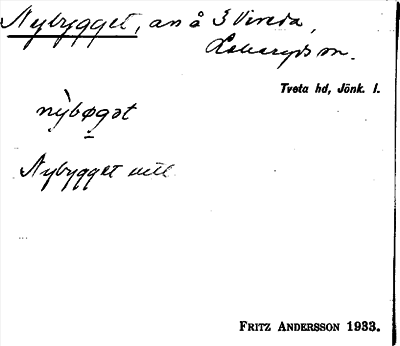 Nybygget, avs å 3 Vireda,
Lekeryds sn.
Tveta hd, Jönk. l.
nỳbøgət
Nybygget
FRITZ ANDERSSON 1933.